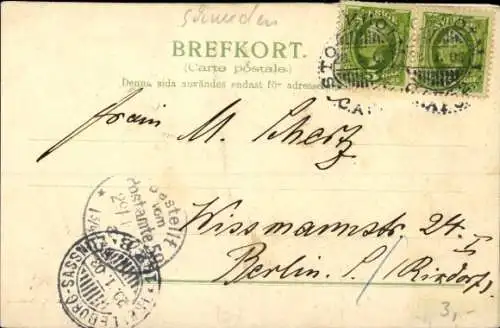 Schweden
BREFKORT.
(Carte postale.)
Denna sida användes endast för adressen.
STO
C.A
Fräu M. Schertz
Wissmannstr. 24 I
Berlin. S./ (Rixdorf)
Bestellt
vom
Postamte 50
29/1
TRÄLLEBORG-SASSNITZ
29.1.03
3,-